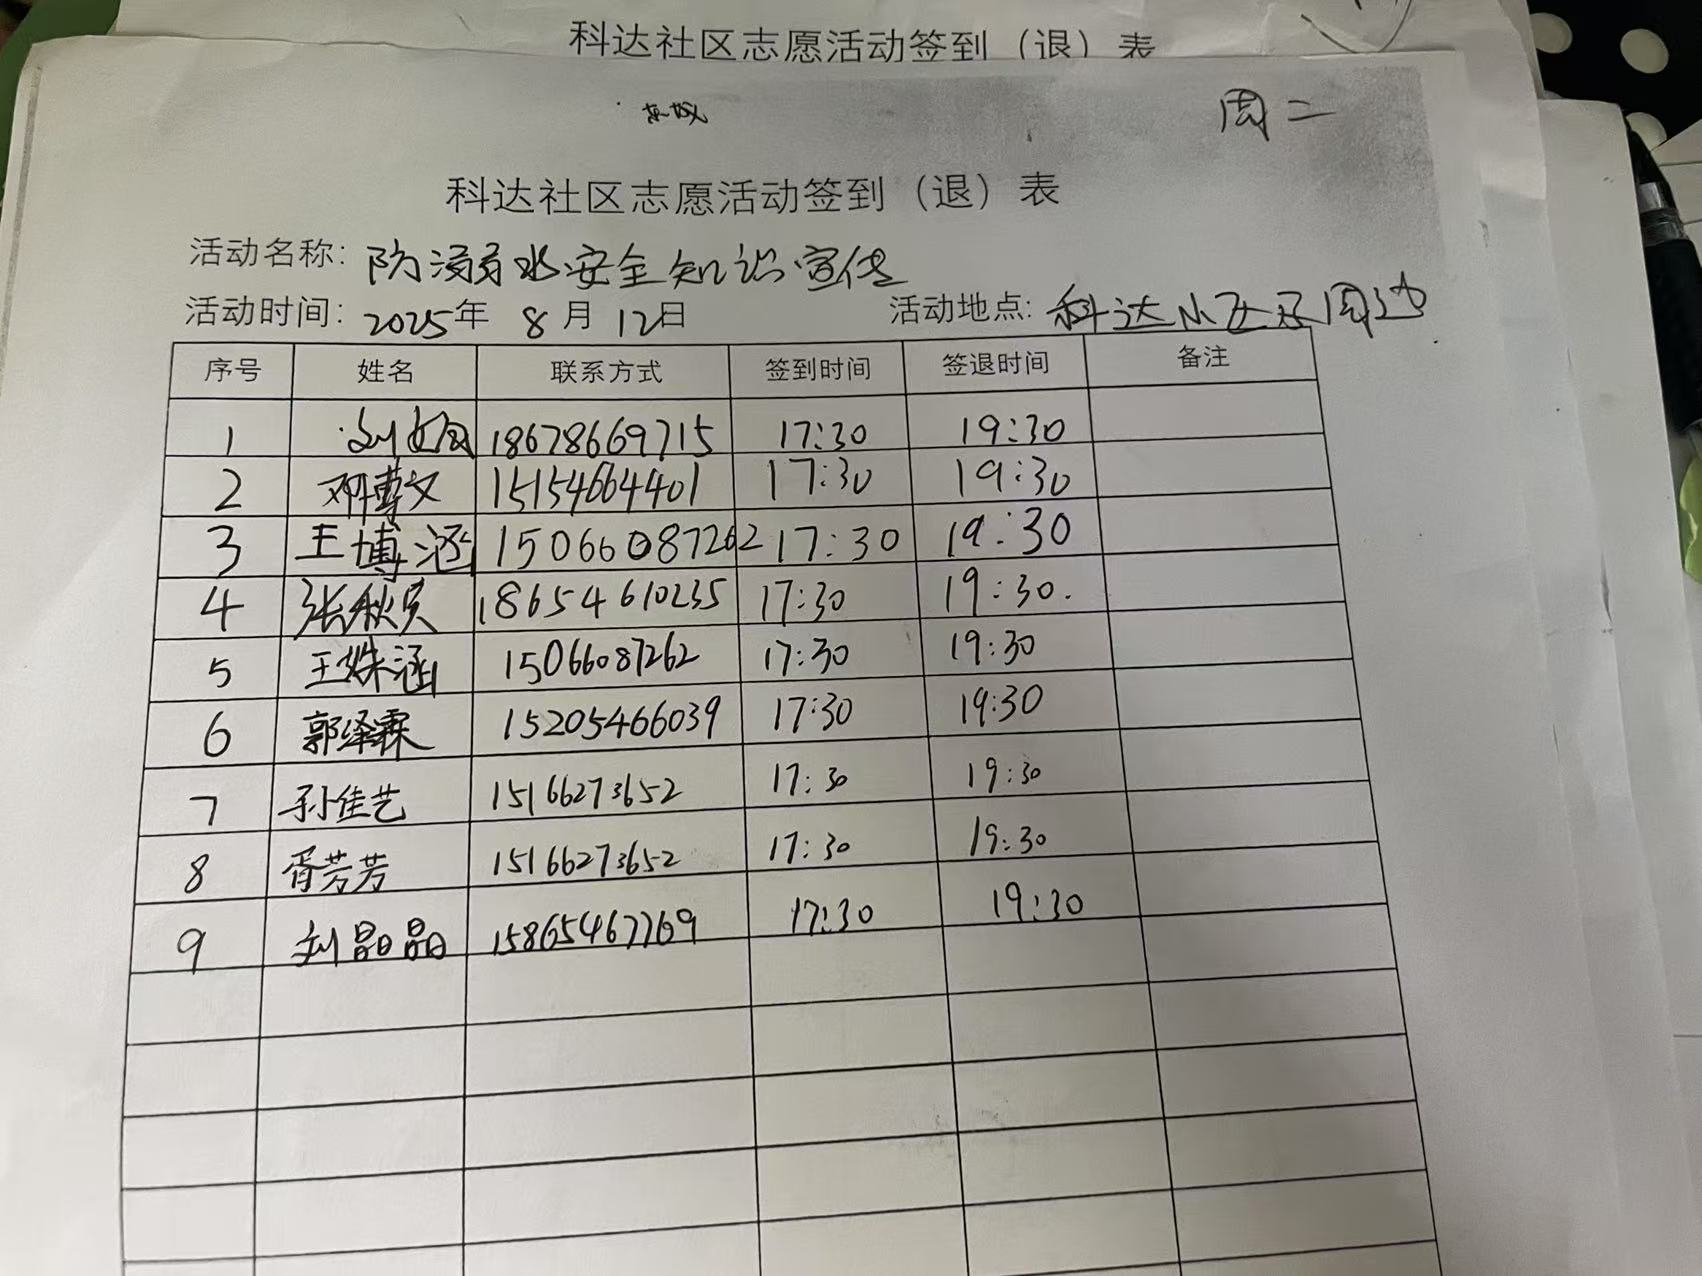 科达社区志愿活动签到（退）表
周二
科达社区志愿活动签到（退）表
活动名称：防溺水安全知识宣传
活动时间：2025年 8月 12日 活动地点：科达小区及周边
序号 姓名 联系方式 签到时间 签退时间 备注
1 刘 18678669715 17:30 19:30
2 邓尊文 15154664401 17:30 19:30
3 王博涵 15066087262 17:30 19:30
4 张秋 18654610235 17:30 19:30.
5 王姝涵 15066087262 17:30 19:30
6 郭泽霖 15205466039 17:30 19:30
7 孙佳艺 15166273652 17:30 19:30
8 胥芳芳 15166273652 17:30 19:30
9 刘晶晶 15865467769 17:30 19:30